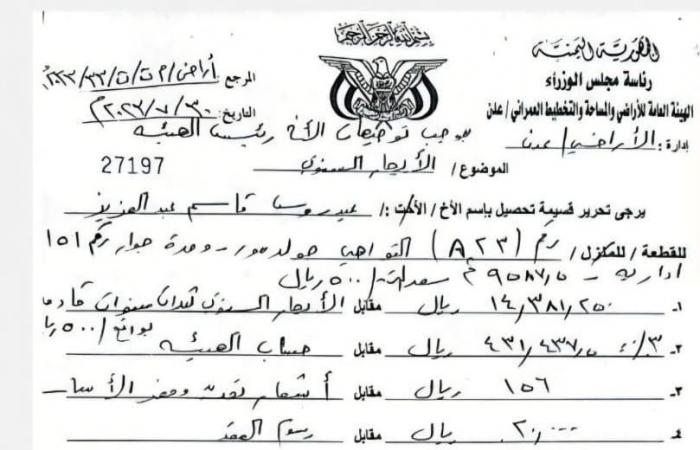 بسم الله الرحمن الرحيم
الجمهورية اليمنية
رئاسة مجلس الوزراء
الهيئة العامة للأراضي والمساحة والتخطيط العمراني / عدن
المرجع أراضي / م ت / ت / ٣٣ / ٢٠٢٣
التاريخ: ٣٠ / ٧ / ٢٠٢٣م
بموجب توضيحات الأخ رئيس الهيئة
إدارة: الأراضي / عدن
الموضوع / الأيجار السنوي
27197
يرجى تحرير قسيمة تحصيل باسم الأخ / الأخت: / عيدروس قاسم عبدالعزيز
للقطعة / للمنزل / رقم (A ٢٣) التواهي جولدمور - وحدة جوار رقم ١٥١
ادارية - ٩٥٨٧٫٥ م٢ ٥٠٠ ريال
١- ١٤٫٣٨١٫٢٥٠ ريال مقابل الأيجار السنوي ثلاث سنوات قادمة
بواقع / ٥٠٠ ريا
٢- ٣٪ ٤٣١٫٤٣٧٫٥ ريال مقابل حساب الهيئة
٣- ١٥٦ ريال مقابل
٤ ٢٠٫٠٠٠ ريال مقابل رسوم العقد